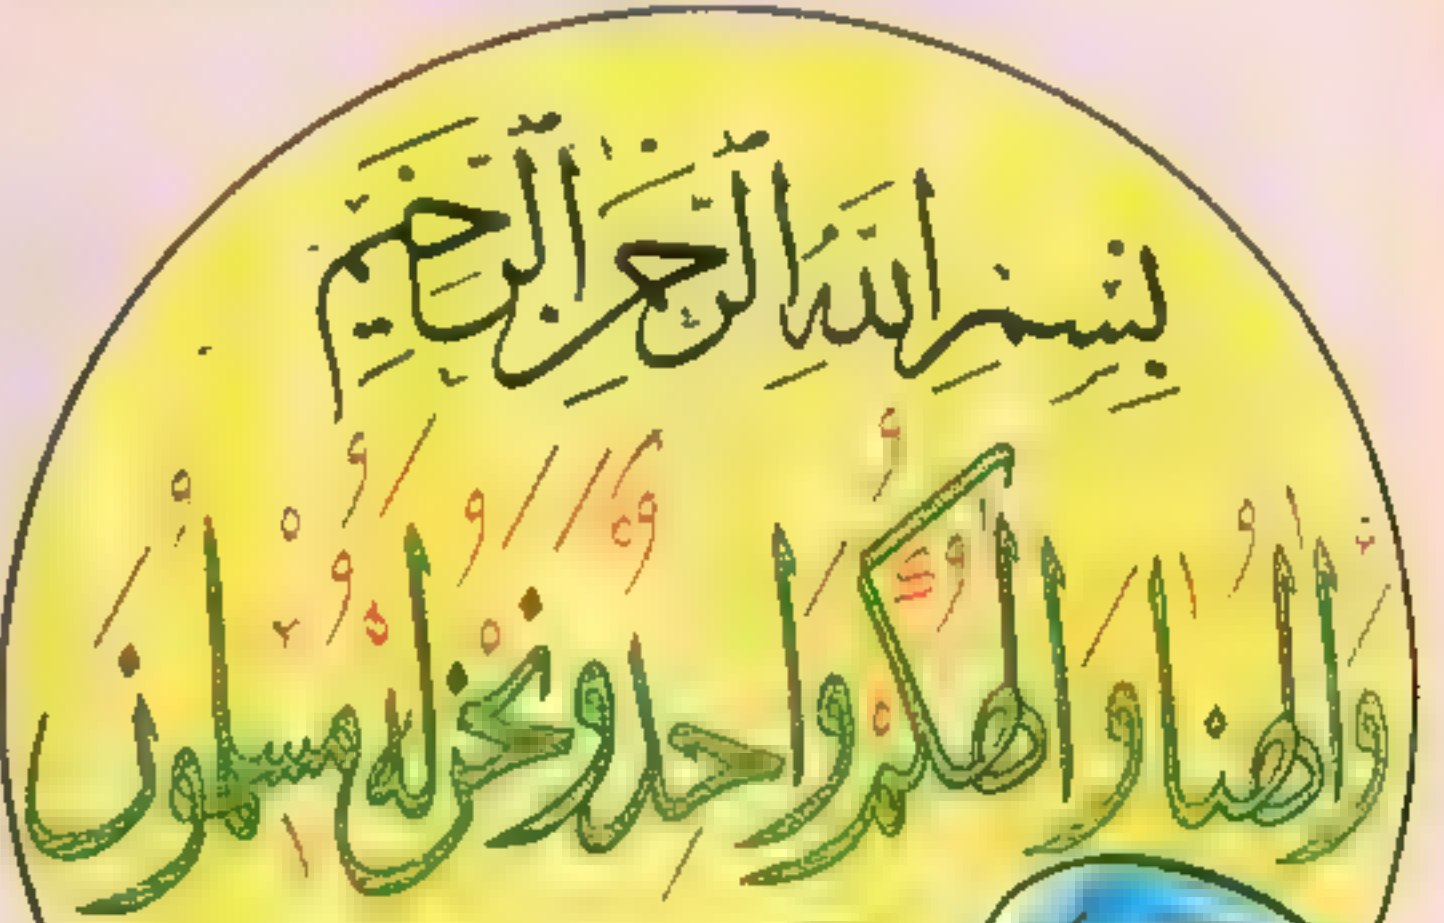 بِسْمِ اللَّهِ الرَّحْمَٰنِ الرَّحِيمِ
وَإِلَٰهُنَا وَإِلَٰهُكُمْ وَاحِدٌ وَنَحْنُ لَهُ مُسْلِمُونَ